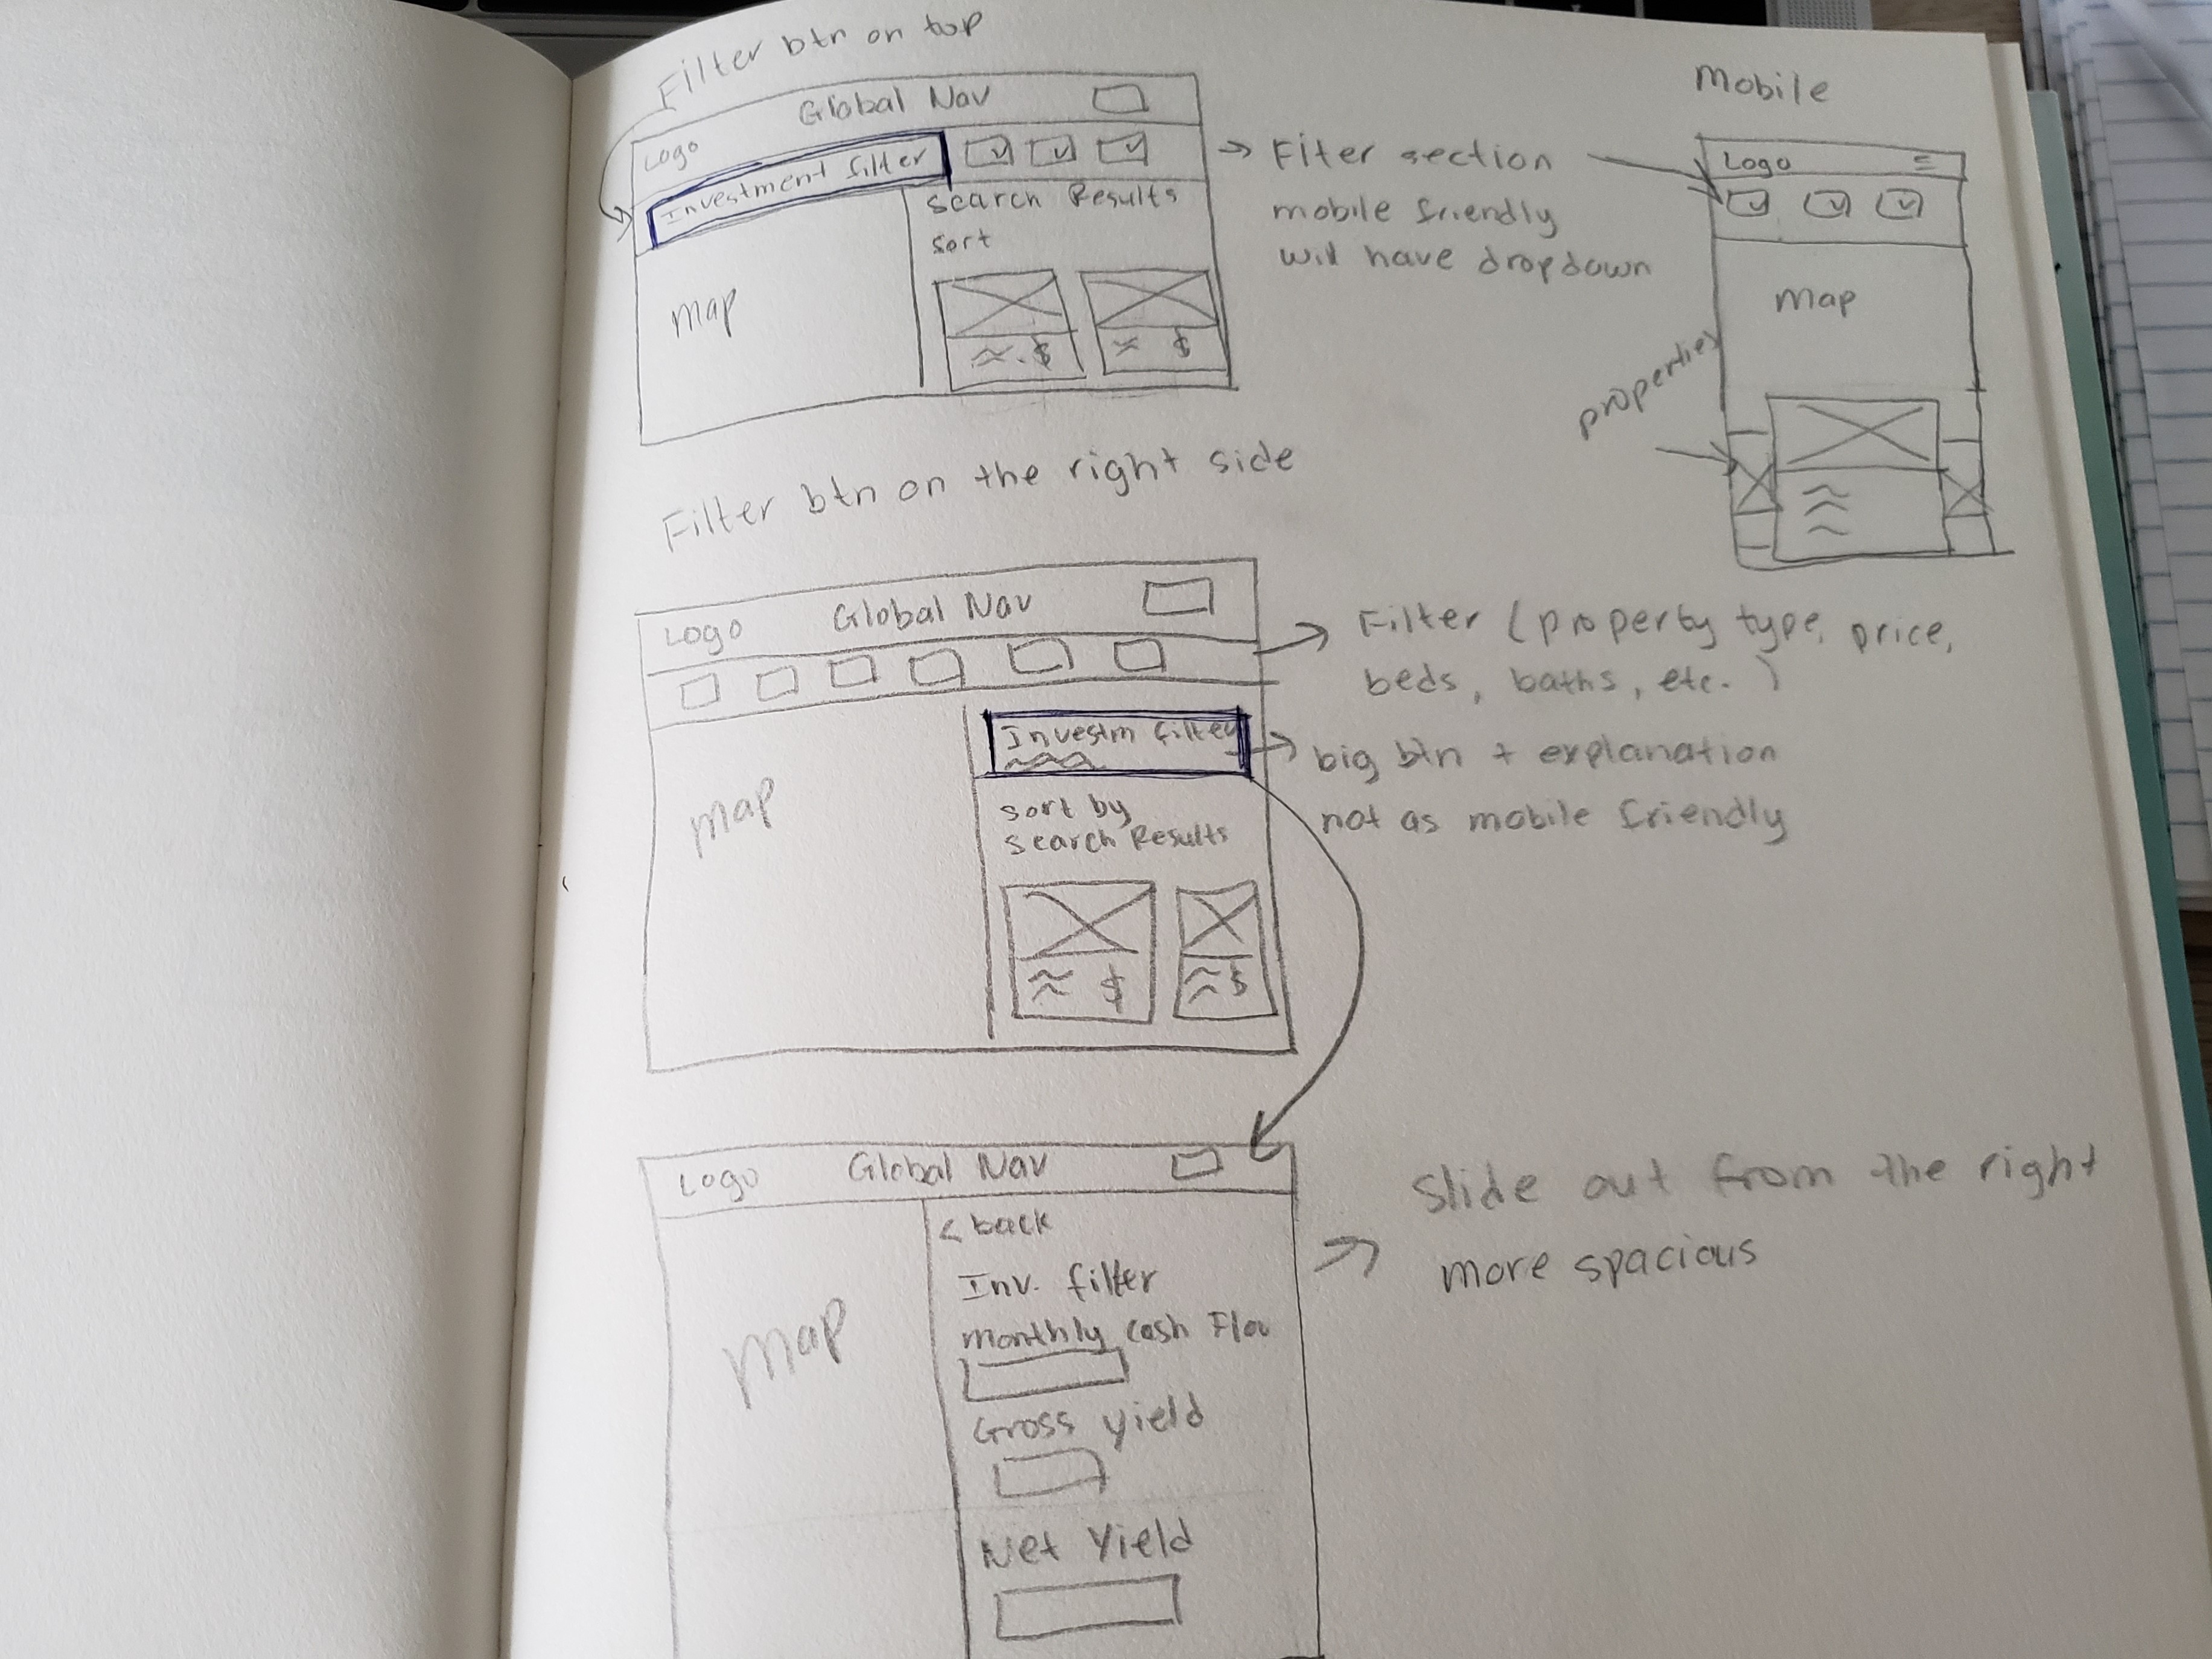 Filter btn on top
Global Nav
Logo
Investment filter
Search Results
sort
map
$
$
Fiter section
mobile friendly
will have dropdown
Mobile
Logo
map
properties
Filter btn on the right side
Logo Global Nav
Filter (property type, price,
beds, baths, etc.)
map
Investm filter
big btn + explanation
not as mobile friendly
sort by
search Results
$
$
Logo Global Nav
< back
Inv. filter
monthly cash Flow
Gross yield
Net Yield
map
Slide out from the right
more spacious